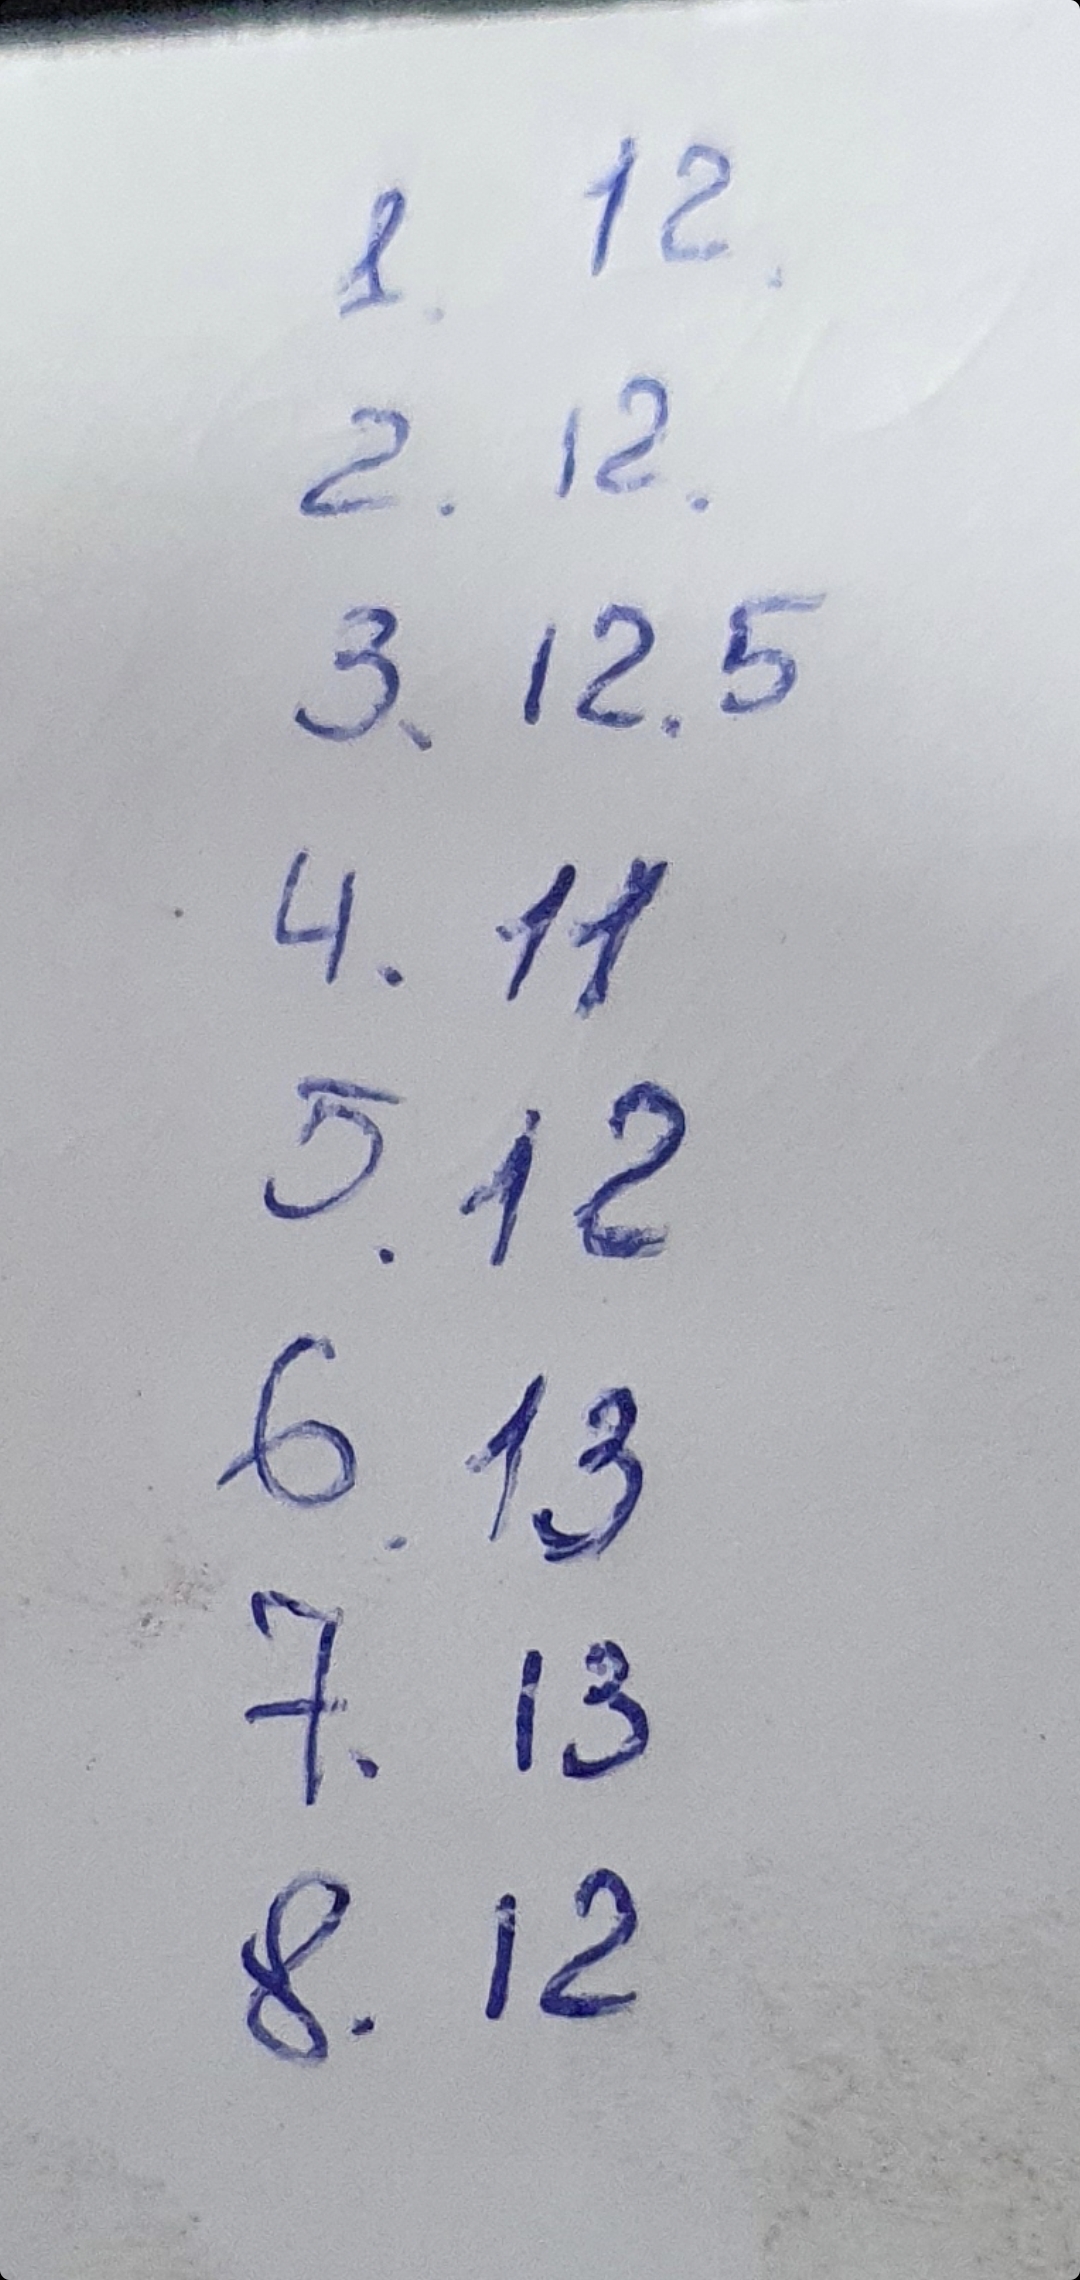 1. 12.
2. 12.
3. 12.5
4. 11
5. 12
6. 13
7. 13
8. 12